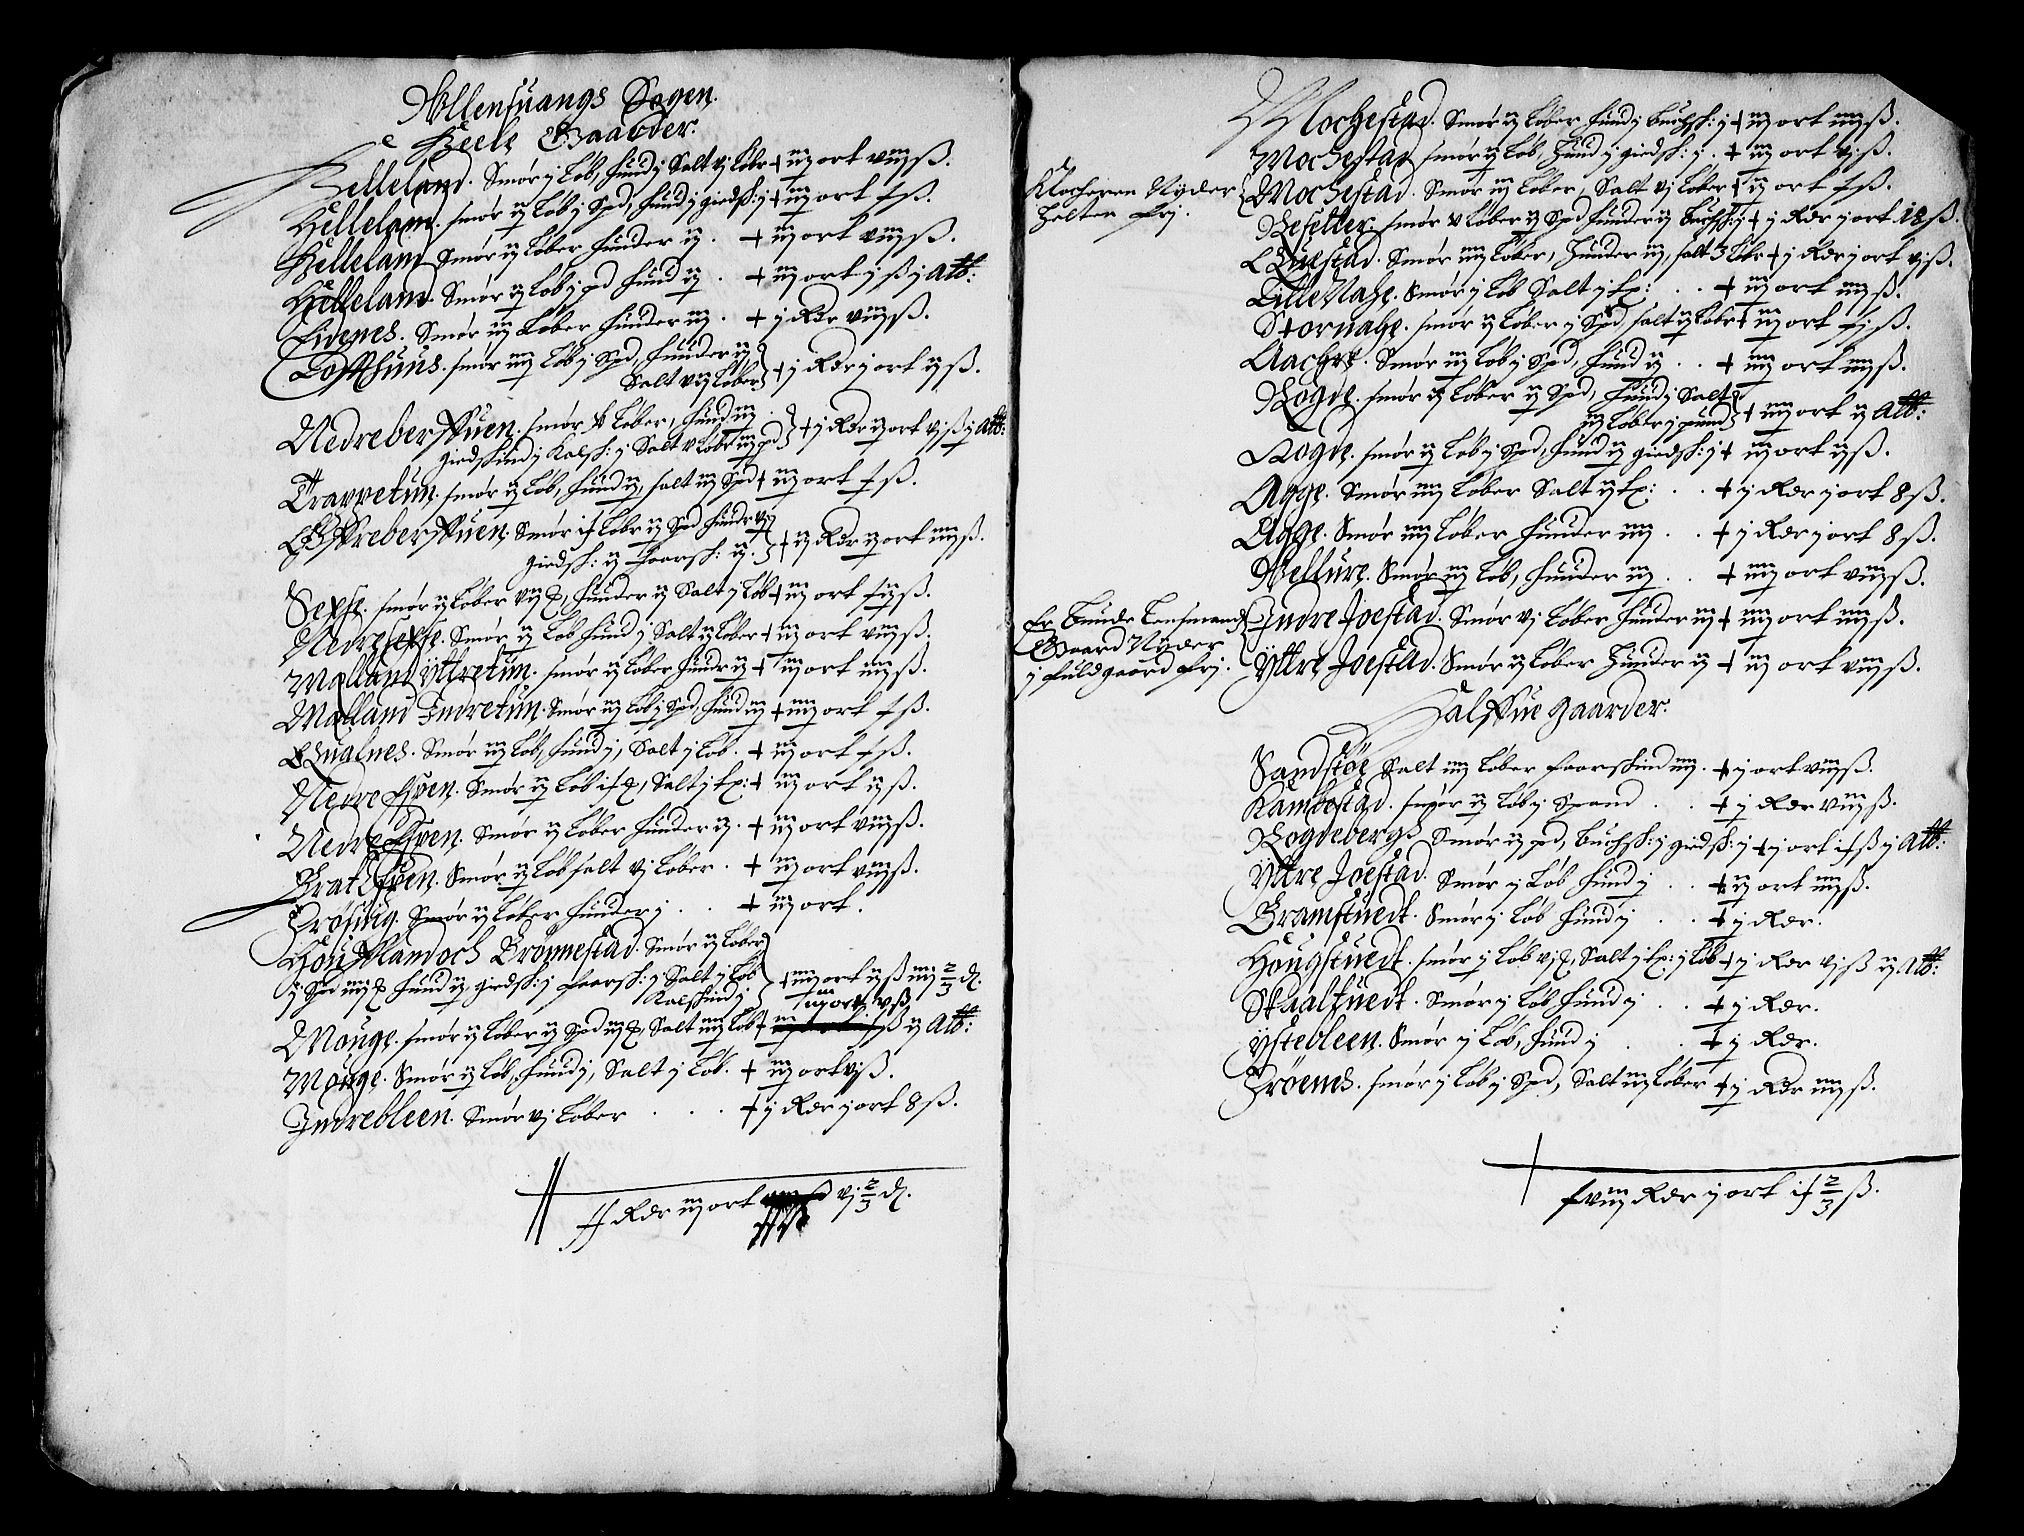 Ullensuangs Sogen.
Heele Gaarder.
Helleland. Smør j Løb, Hund j Salt vj Løbr + iij ort viij ß.
Hellelam. smør ij Løb j Spd, Hund j giedsk: j + iij ort x ß.
Hellelam Smør ij Løber Hunder ij. + iij ort viij ß.
Hellelam. Smør ij Løb j pd Hund ij. + iij ort j ß j Alb:
Eidenes. Smør iij Løber Hunder iij. + j Rdr viij ß.
Lofthuus. smør iiij Løb j Spd, Hunder ij
Salt viij Løber + j Rdr j ort ij ß.
Nedreberfuen. smør v Løber, Hund iij
giedskind j Kalfsk: j Salt v Løbr iij pd + j Rdr ij ort vj ß j Alb:
Traaetun. smør ij Løb, Hund ij, salt iij Spd + iij ort x ß.
Øffreberffuen. Smør ix Løbr ij Spd Hundr vij
giedsk: ij Faarsk: ij. + ij Rdr ij ort iiij ß.
Sexse. smør ij Løber viij , Hunder ij Salt j Løb + iij ort xij ß.
Nedresexse. Smør ij Løb Hund j Salt ij Løber + iij ort viij ß.
Malland Yttretun. smør ij Løber Hundr ij + iij ort iiij ß.
Malland Indretun. Smør iij Løb j Spd, Hund iij + iiij ort x ß.
Qualnes. Smør iij Løb, Hund j, Salt j Løb. + iij ort x ß.
Nedre Espen. Smør ij Løb , Salt j tr: + iij ort ij ß.
Nedre Espen. Smør ij Løber Hunder ij. + iij ort viij ß.
Brat Espen. Smør ij Løb salt vj Løber. + iij ort viij ß.
Frøsuig. Smør ij Løber Hunder j . . + iij ort.
Houfland och Frønnestad. Smør ij Løber
j Spd iiij , Hund ij, giedsk: j Faarsk: j Salt j Løb
Kalfskind j + iiij ort ij ß iiij 2/3 d.
iij ort v ß
Mouge. smør ij Løber ij Spd , Salt iiij Løb + ß ij Alb:
Mouge. Smør ij Løb, Hund j, Salt j Løb. + iij ort vj ß.
Indrebleen. Smør vj Løber . . . + j Rdr j ort 8 ß.
Rdr iij ort vj 2/3 d.
Mochestad. Smør ij Løber Hund j buchsk: j + iij ort iiij ß.
Mochestad smør ij Løb, Hund j giedsk: j. + iij ort vj ß.
Klocheren Nyder
helten frj.
Mochestad. Smør iij Løber, Salt vj Løber + ij ort x ß.
smør v Løber ij Spd Hunder ij buchsk: j + j Rdr j ort 12 ß.
Questad. Smør iiij Løber, Hunder iij, salt 3 Løbr + j Rdr j ort vj ß.
Lille Nahe. Smør j Løb Salt j tr: . . + iij ort iiij ß.
Stornahe. smør ij Løber j Spd, salt ij Løbr + iij ort xj ß.
Aachre. Smør iij Løb j Spd, Hund ij . . + iiij ort iiij ß.
Rogde. smør ij Løber ij Spd, Hund j Salt
iij Løber j pund + iiij ort ij Alb:
Rogde. smør ij Løb j Spd, Hund ij giedsk: j + iij ort ij ß.
Agge. Smør iiij Løber Salt ij tr: . . + j Rdr j ort 8 ß.
Agge. Smør iiij Løber Hunder iiij . . + j Rdr j ort 8 ß.
Vellure. Smør iij Løb, Hunder iij . . + iiij ort viij ß.
Er Bunde Lensmands
Gaard Nyder
j fuld gaard frj.
Indre Joestad. Smør vj Løber Hunder iij + iiij ort iiij ß.
Yttre Joestad. Smør ij Løber Hunder ij + iij ort viij ß.
Halffue gaarder.
Sandstøe Salt iiij Løber Faarskind iiij. + j ort viij ß.
Kambestad. smør ij Løb j Spand . . + j Rdr viij ß.
Rogdeberg Smør ij pd, buchsk: j giedsk: j + j ort ß j Alb:
Yttre Joestad. Smør j Løb Hund j . . + ij ort iiij ß.
Bramstuedt. Smør j Løb Hund j . . + j Rdr.
Hougstuedt. smør j Løb vj , Salt j tr: j Løb + j Rdr vj ß ij Alb:
Skaaltuedt. Smør j Løb Hund j . . + j Rdr.
Ystebleen. Smør j Løb, Hund j . . + j Rdr.
Frøenes. smør j Løb j Spd, Salt iij Løber + j Rdr iiij ß.
xviij Rdr j ort 2/3 ß.